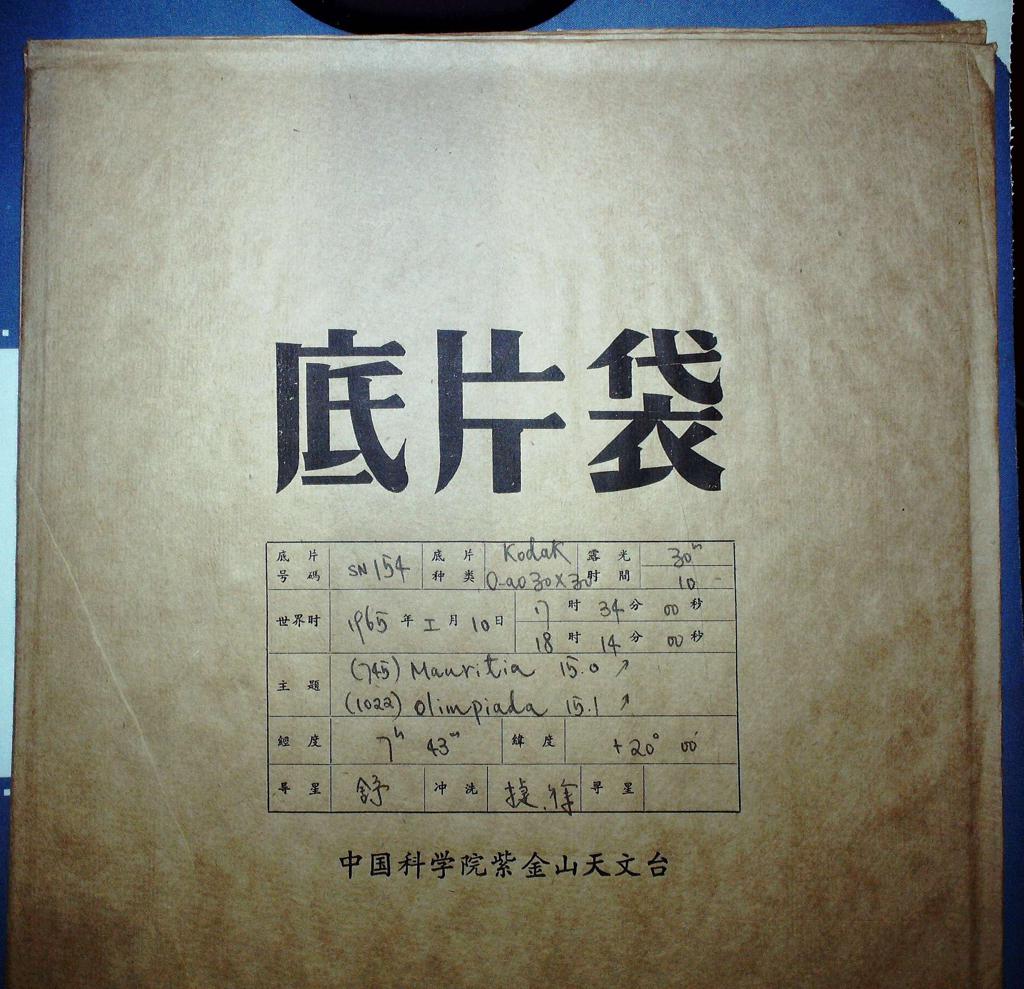 底片袋
底片号碼 SN 154 底片种类 Kodak O-ao 30X30 露光时間 30m 10
世界时 1965年 I月 10日 17时 34分 00秒
18时 14分 00秒
主題 (745) Mauritia 15.0 ↗
(1022) Olimpiada 15.1 ↗
經度 7h 43m 緯度 +20° 00'
导星 舒 冲洗 徐 寻星
中国科学院紫金山天文台